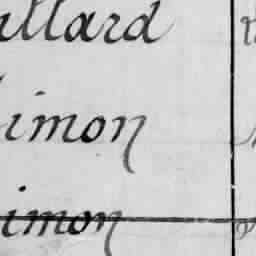 allard
imon
imon